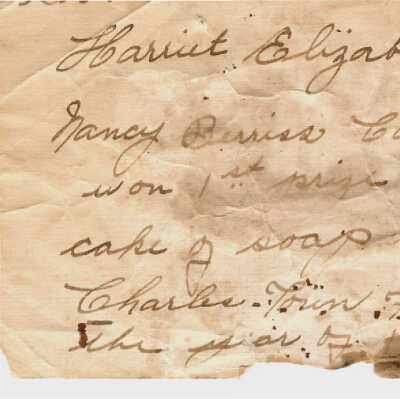 Harriet Elizab
Nancy Berriss Co
won 1st prize
cake of soap
Charles-Town F
The year of